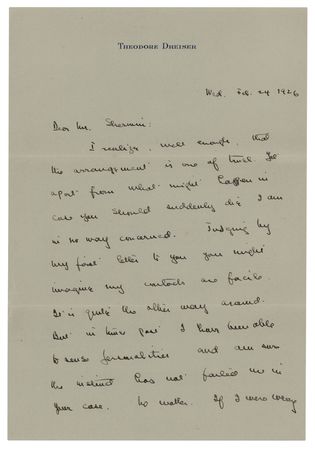 THEODORE DREISER
Wed. Feb. 24 1926
Dear Mr.
I realize, well enough, that
the arrangement is one of trust. Yet
apart from what might happen in
case you should suddenly die I am
in no way concerned. Judging by
my first letter to you you might
imagine my contacts are facile.
It is quite the other way around.
But in times past I have been able
to sense personalities and am sure
the instinct has not failed me in
your case. No matter. If I were wrong